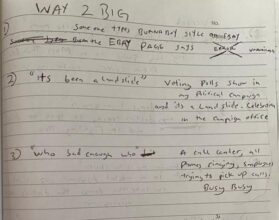 WAY 2 BIG
1) Someone types BURNABOY SITLE
Burn the EBAY PAGE says ERROR
2) "Its been a landslide" Voting Polls show in
my Political campaign
and its a landslide. Celebration
in the campaign office
3) "Who bad enough who" A call center, all
phones ringing, employees
trying to pick up calls.
Busy Busy